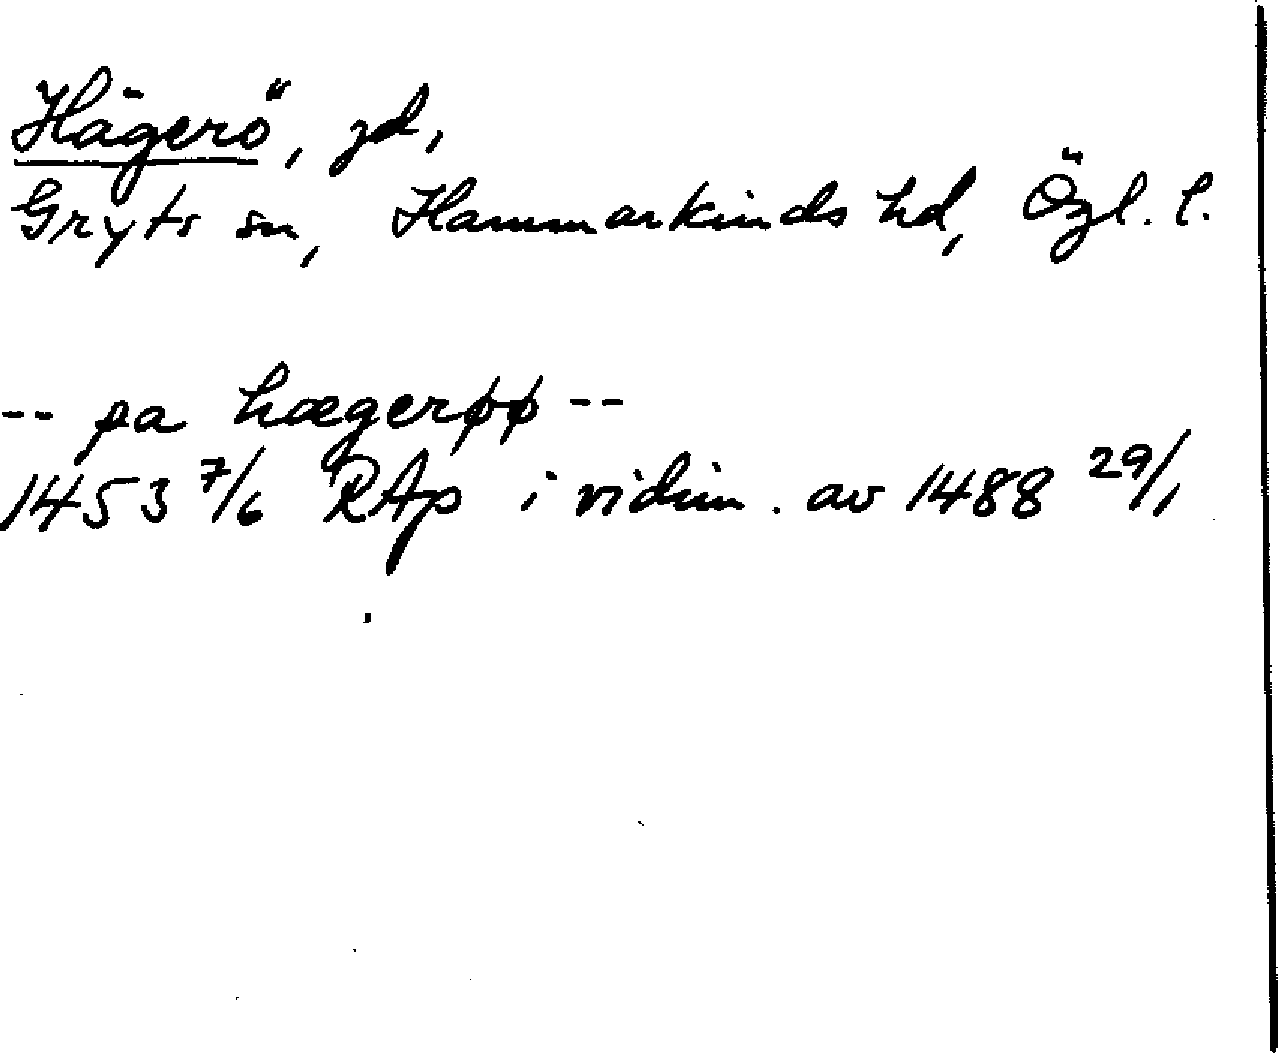 Hägerö, gd,
Gryts sn, Hammarkinds hd, Ögl. l.
-- pa hægerøø --
1453 7/6 RAp i vidim. av 1488 29/1